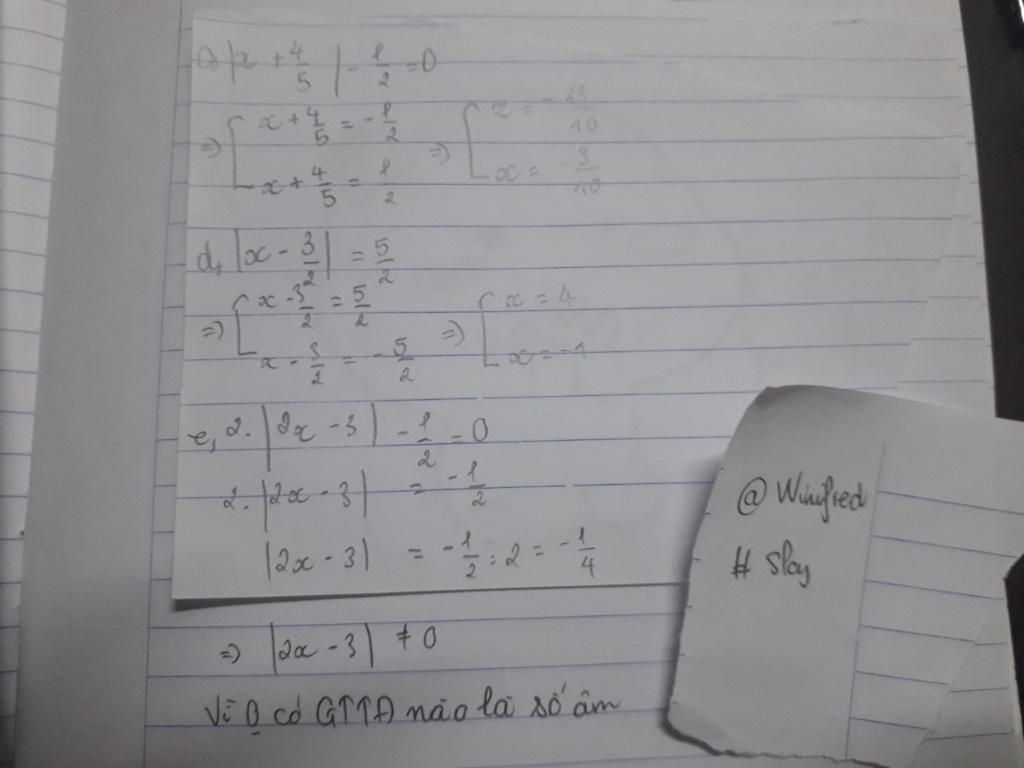 c, |x + 4/5| - 1/2 = 0
=> [ x + 4/5 = -1/2 => [ x = -13/10
x + 4/5 = 1/2 x = -3/10
d, |x - 3/2| = 5/2
=> [ x - 3/2 = 5/2 => [ x = 4
x - 3/2 = -5/2 x = -1
e, 2. |2x - 3| - 1/2 = 0
2. |2x - 3| = -1/2
|2x - 3| = -1/2 : 2 = -1/4
=> |2x - 3| ≠ 0
Vì 0 có GTTĐ nào là số âm
@ Winifred
# Slay